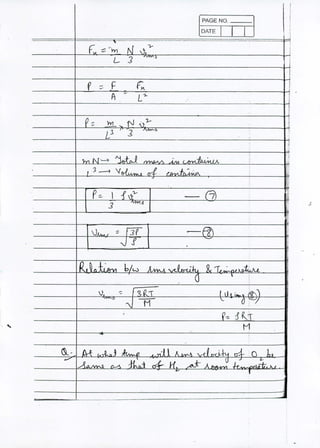 PAGE NO
DATE
Fₓ = m/L N/3 v²rms
P = F/A = Fₓ/L²
P = m/L³ × N/3 v²rms
mN → Total mass in container
L³ → Volume of container
P = 1/3 ρ v²rms — ⑦
Vrms = √(3P/ρ) — ⑧
Relation b/w rms velocity & Temperature
Vrms = √(3RT/M) (Using ⑧)
P = ρRT/M
Q:- At what temp will rms velocity of O₂ be
same as that of H₂ at room temperature.